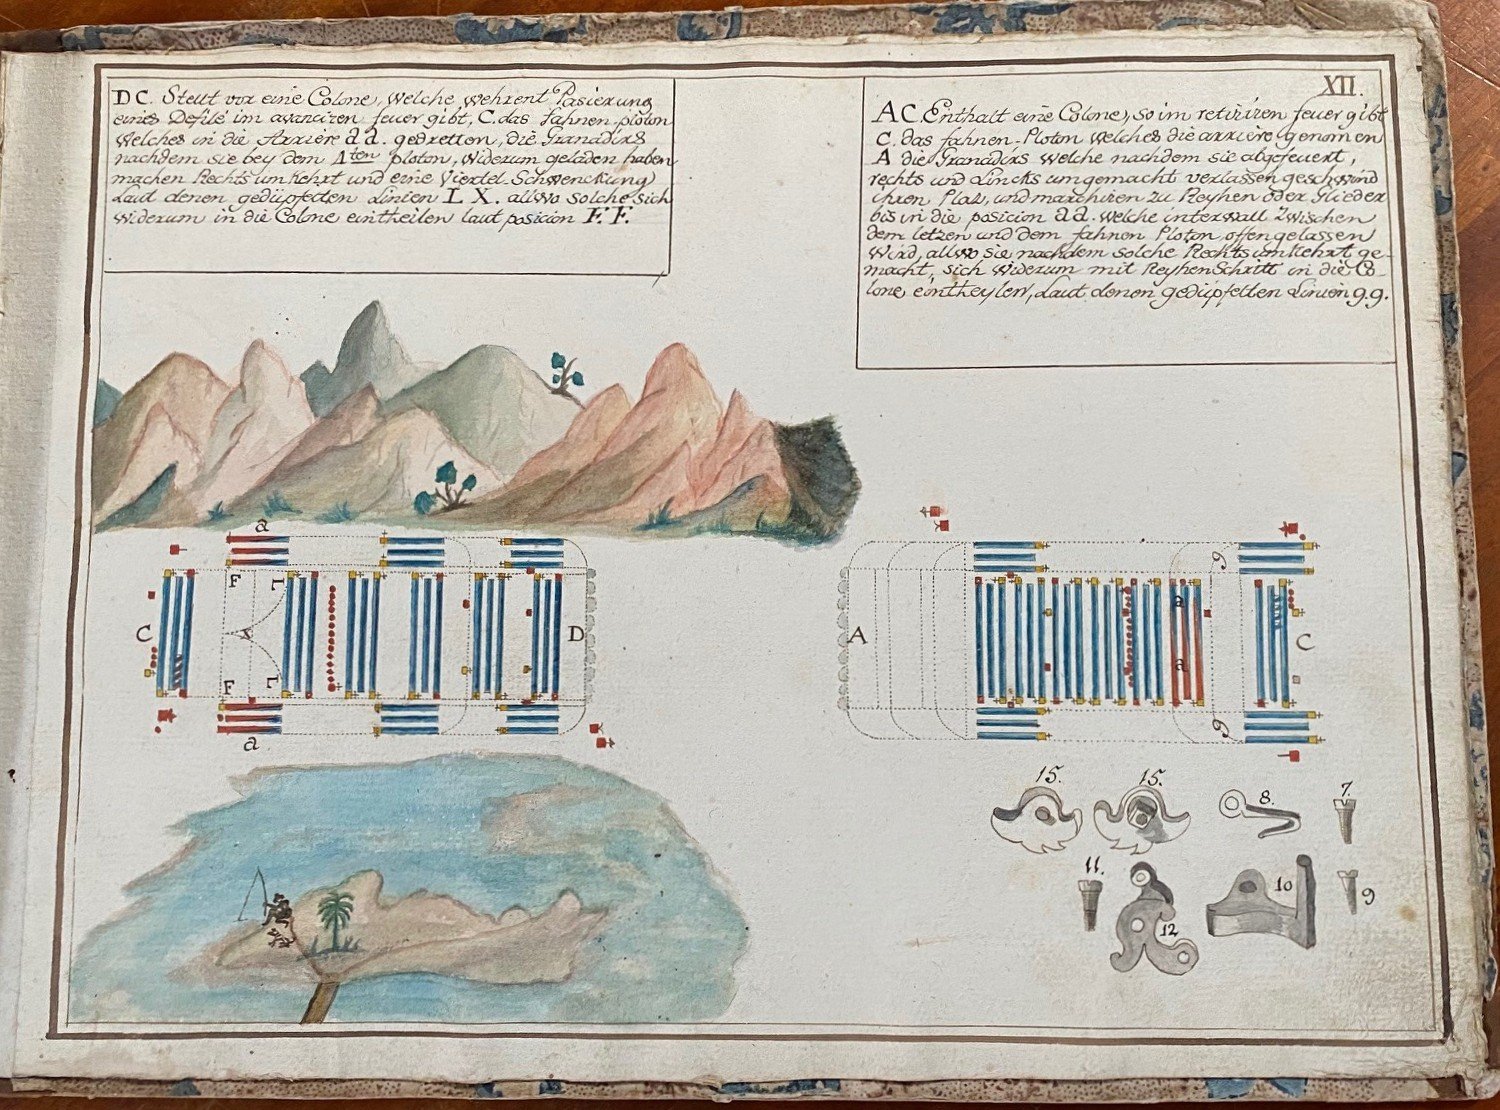 XII.
DC. Stellt vor eine Colone, Welche wehrent Pasierung
eines Defilé im avanciren feuer gibt, C. das fahnen-ploton
Welches in die Arriere a a. gedretten, die Granadirs
nachdem sie bey dem 1ten ploton, widerum geladen haben
machen Rechts um kehrt und eine Viertel-Schwenckung
Laut denen gedüpfetten Linien L X. allwo solche sich
widerum in die Colone eintheilen laut posicion F. F.
AC. Enthalt eine Colone, so im retiriren feuer gibt
C. das fahnen-Ploton welches die arriere genomen
A die Granadirs welche nachdem sie abgefeuert,
rechts und Lincks um gemacht verlassen geschwind
ihren Plaz, und marchiren zu Reyhen oder Glieder
bis in die posicion a a. welche interwall Zwischen
dem letzen und dem fahnen Ploton, offen gelassen
wird, allwo sie nachdem solche Rechts um kehrt ge-
macht, sich widerum mit Reyhen Schritt in die Co-
lone eintheylen, Laut denen gedüpfetten Linien 9.9.
a
F
L
C
X
D
F
L
a
9
a
A
C
a
9
15.
15.
8.
7.
11.
10
9
12